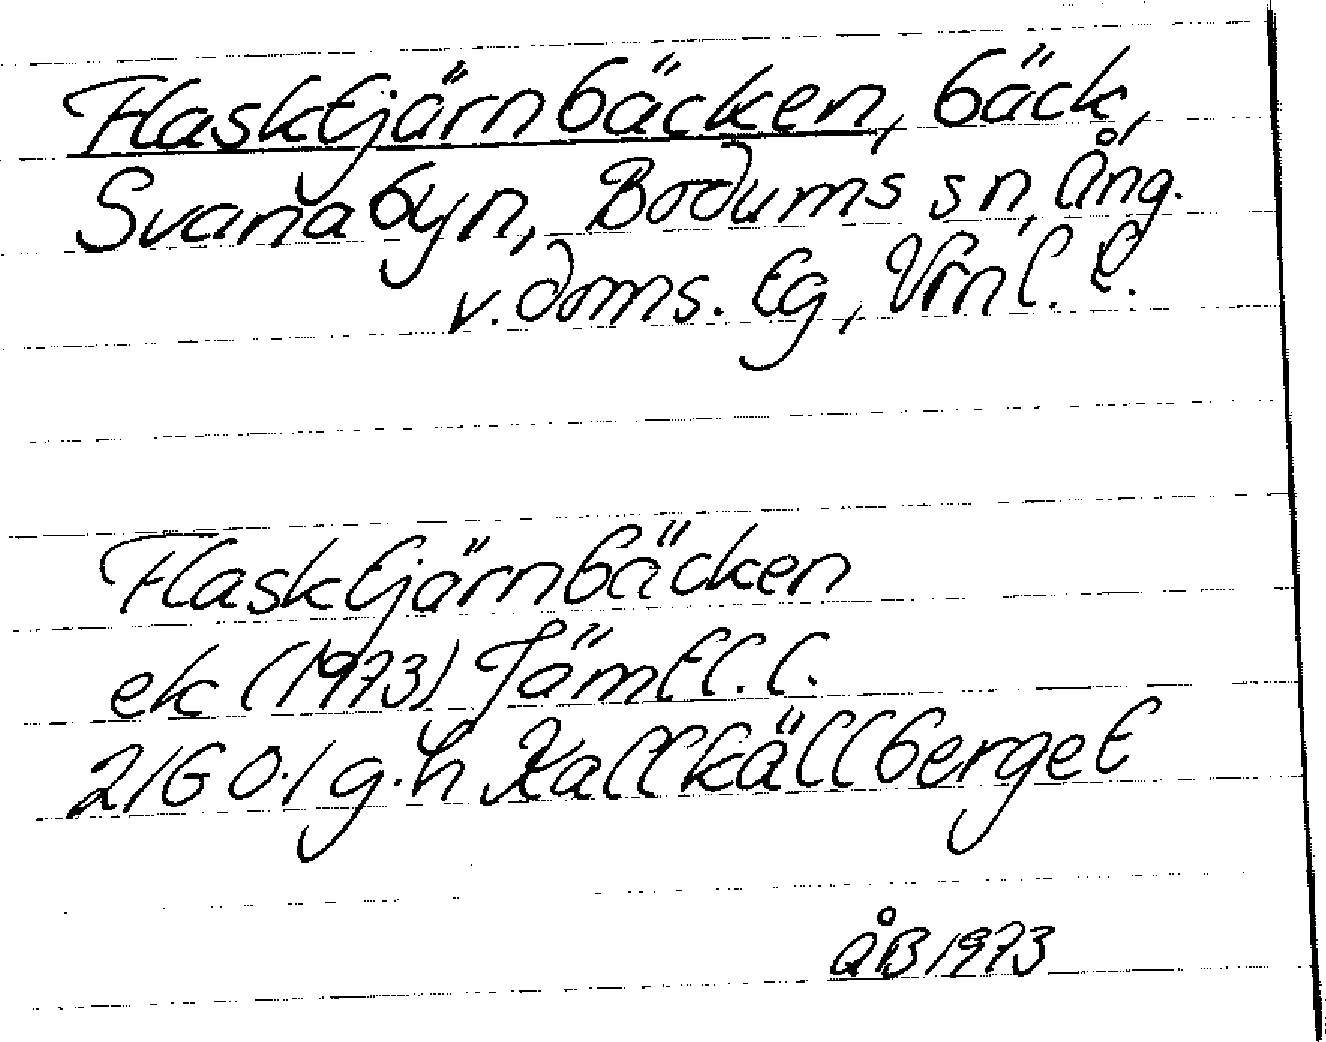 Flasktjärnbäcken, bäck,
Svanabyn, Bodums sn, Ång.
v. doms. tg, Vrnl. l.
Flasktjärnbäcken
ek (1973) Jämtl. l.
21G 0·1 g·h Kallkällberget
ÅB 1973